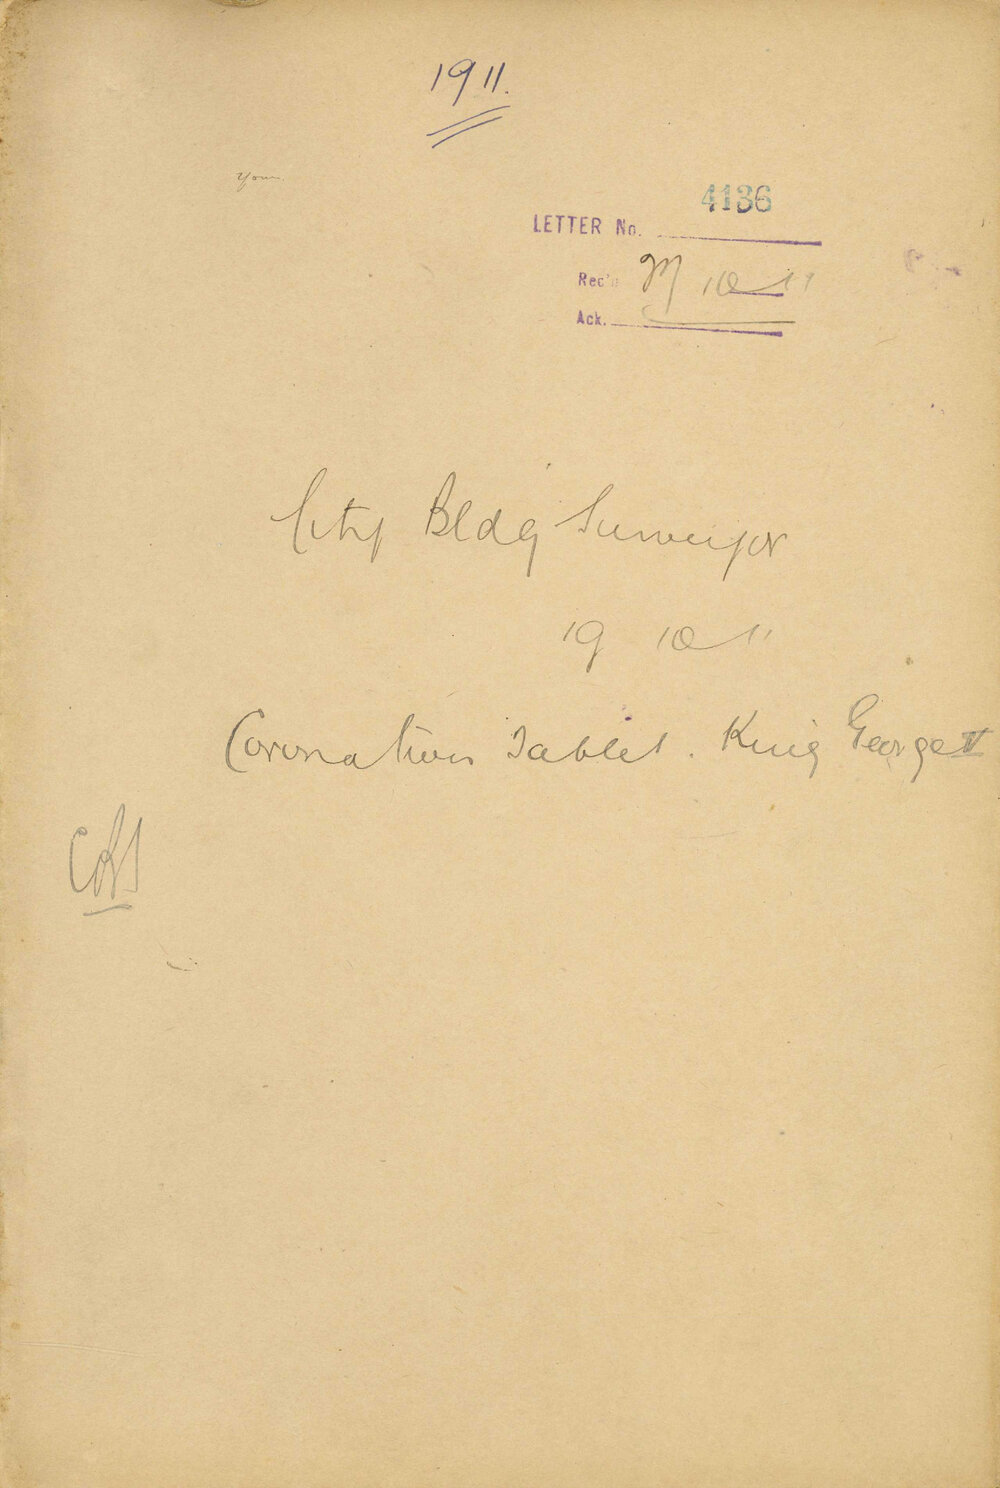 1911.
4136
LETTER No.
Rec'd 10 11
Ack.
City Bldg Surveyor
19 10 11
Coronation Tablet. King George V